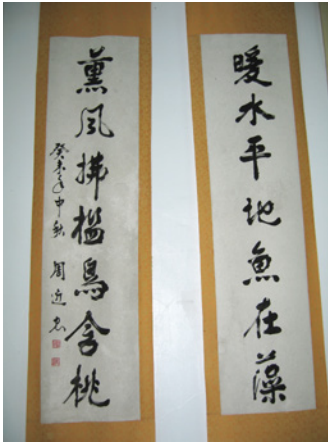 暖水平地魚在藻
薰風拂檻鳥含桃
癸未年中秋 周近思